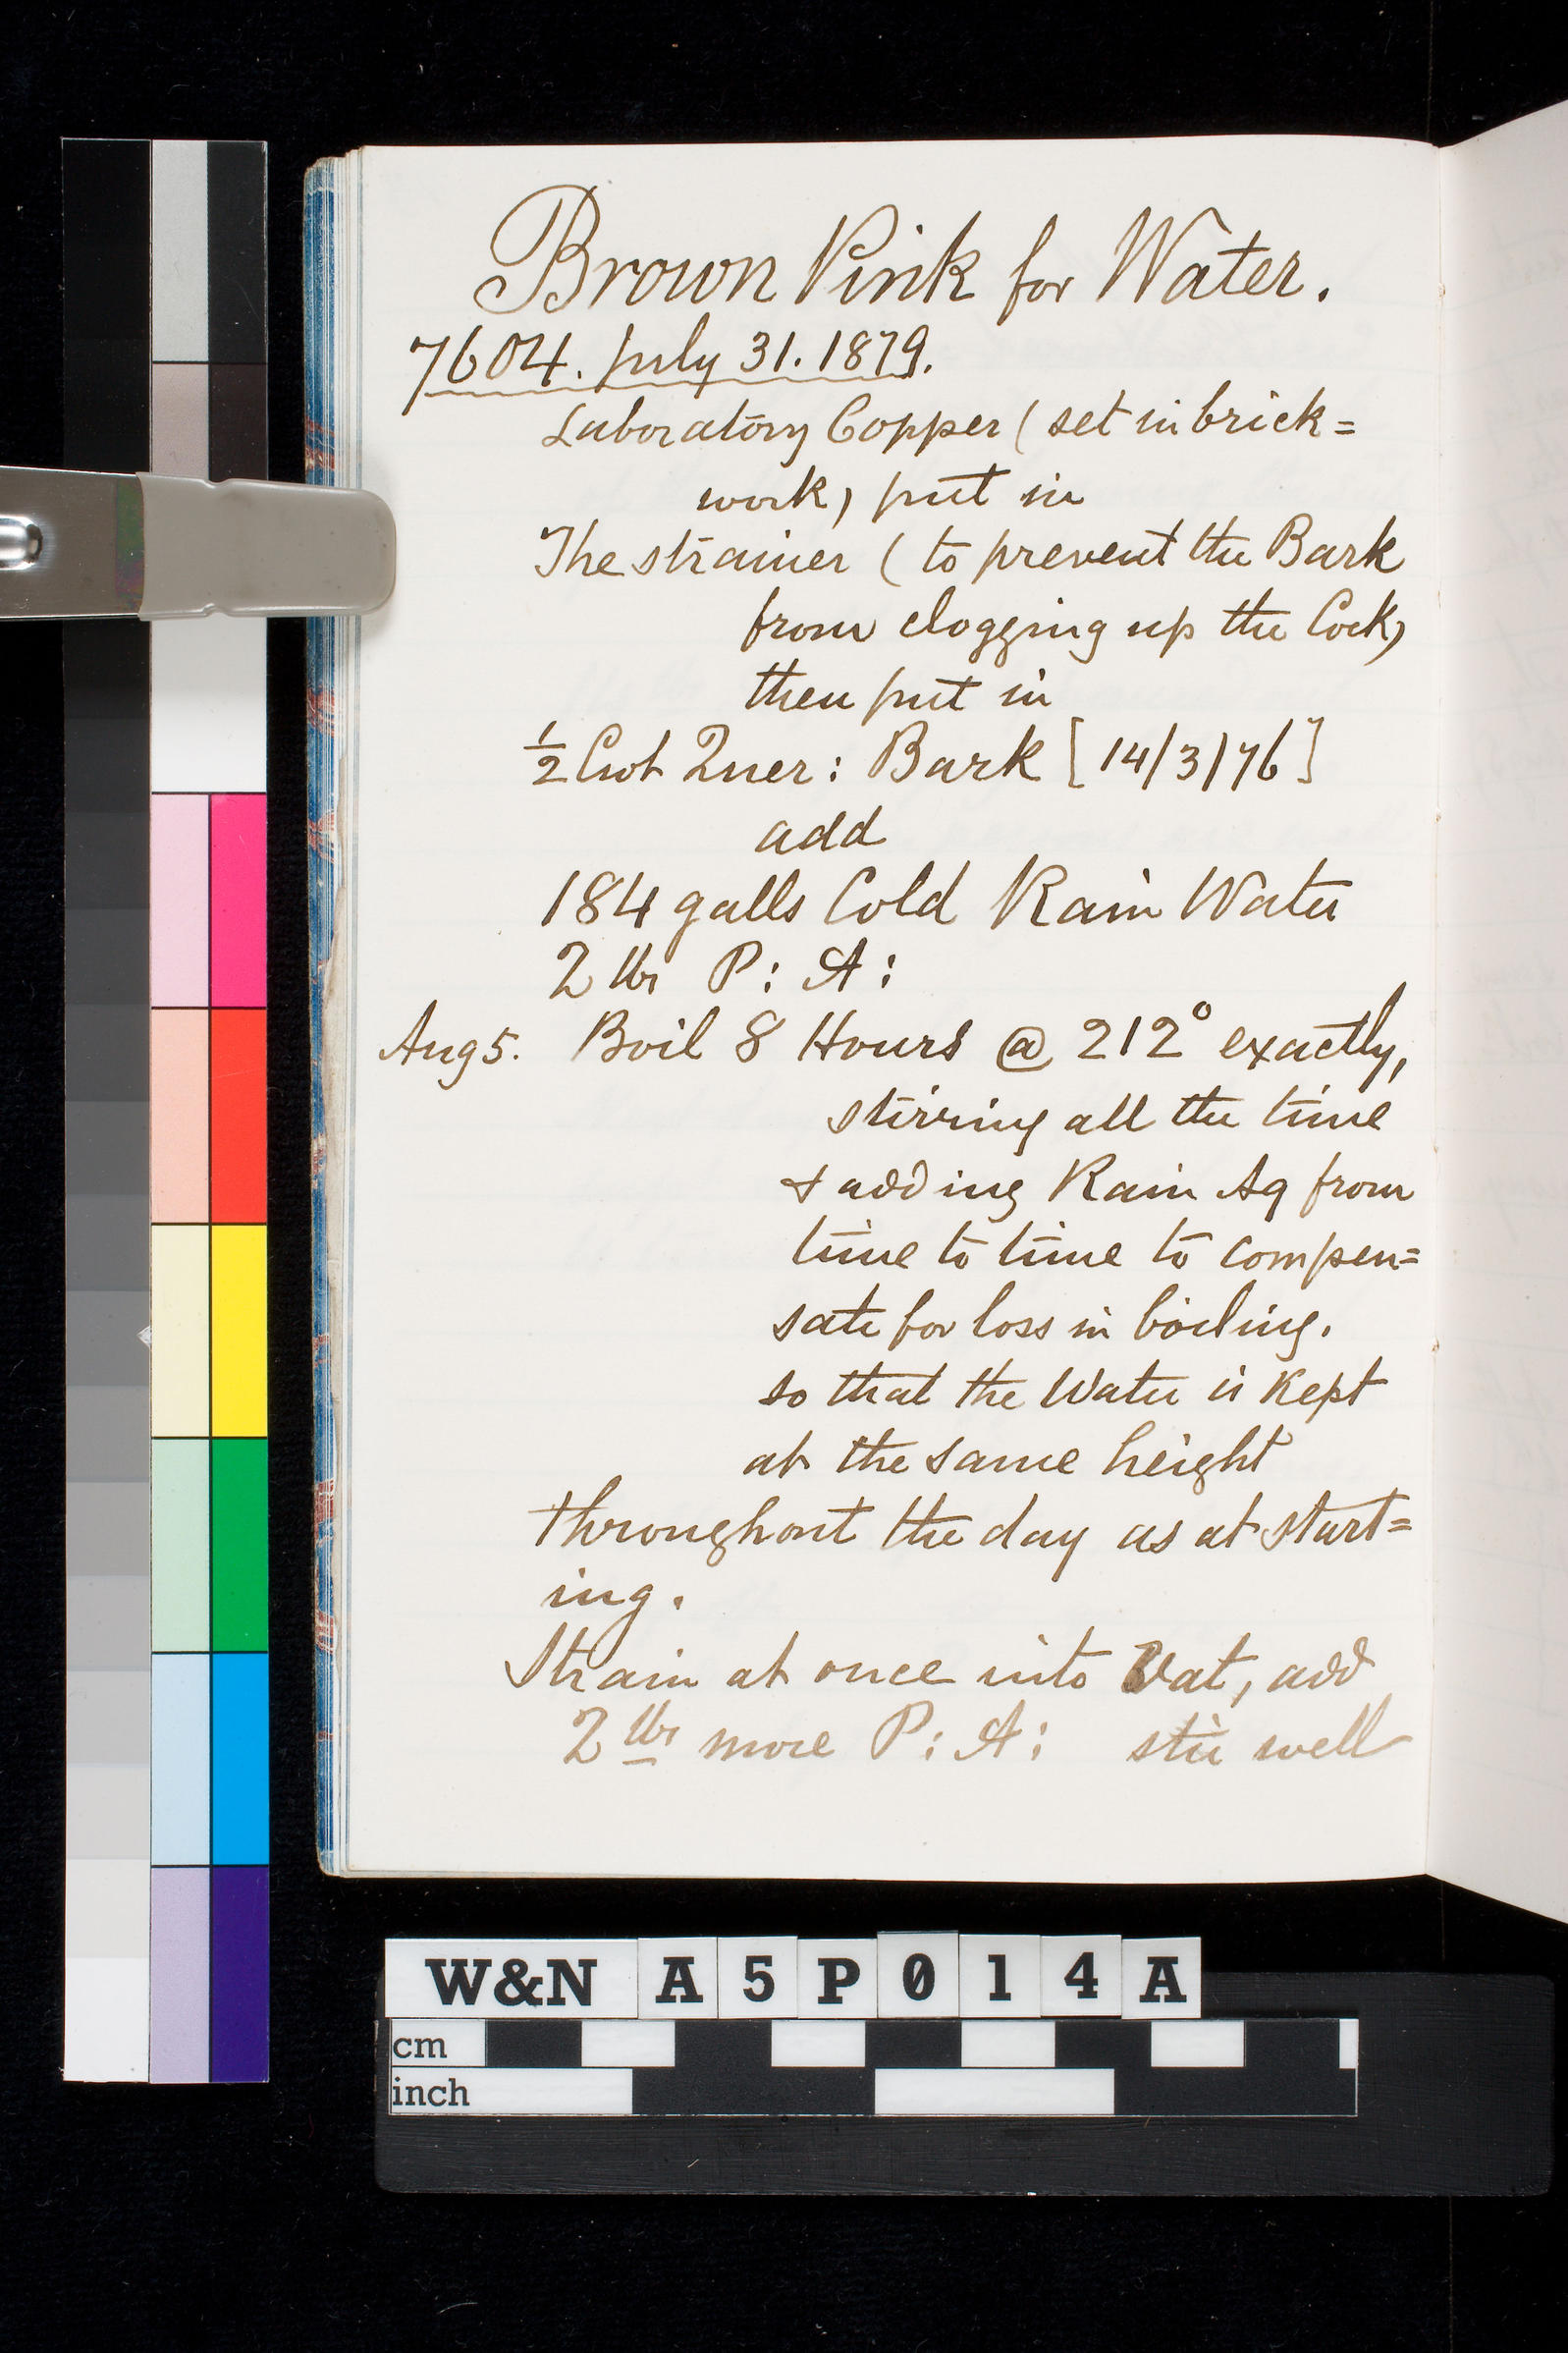 Brown Pink for Water.
7604. July 31. 1879.
Laboratory Copper (set in brick=
work) put in
The strainer (to prevent the Bark
from clogging up the Cock)
then put in
½ Cwt Quer: Bark [14/3/76]
add
184 galls Cold Rain Water
2 lbs P: A:
Aug 5. Boil 8 Hours @ 212° exactly,
stirring all the time
& adding Rain Aq from
time to time to compen=
sate for loss in boiling.
so that the Water is kept
at the same height
throughout the day as at start=
ing.
Strain at once into Vat, add
2 lbs more P: A: stir well
W&N A5P014A
cm
inch